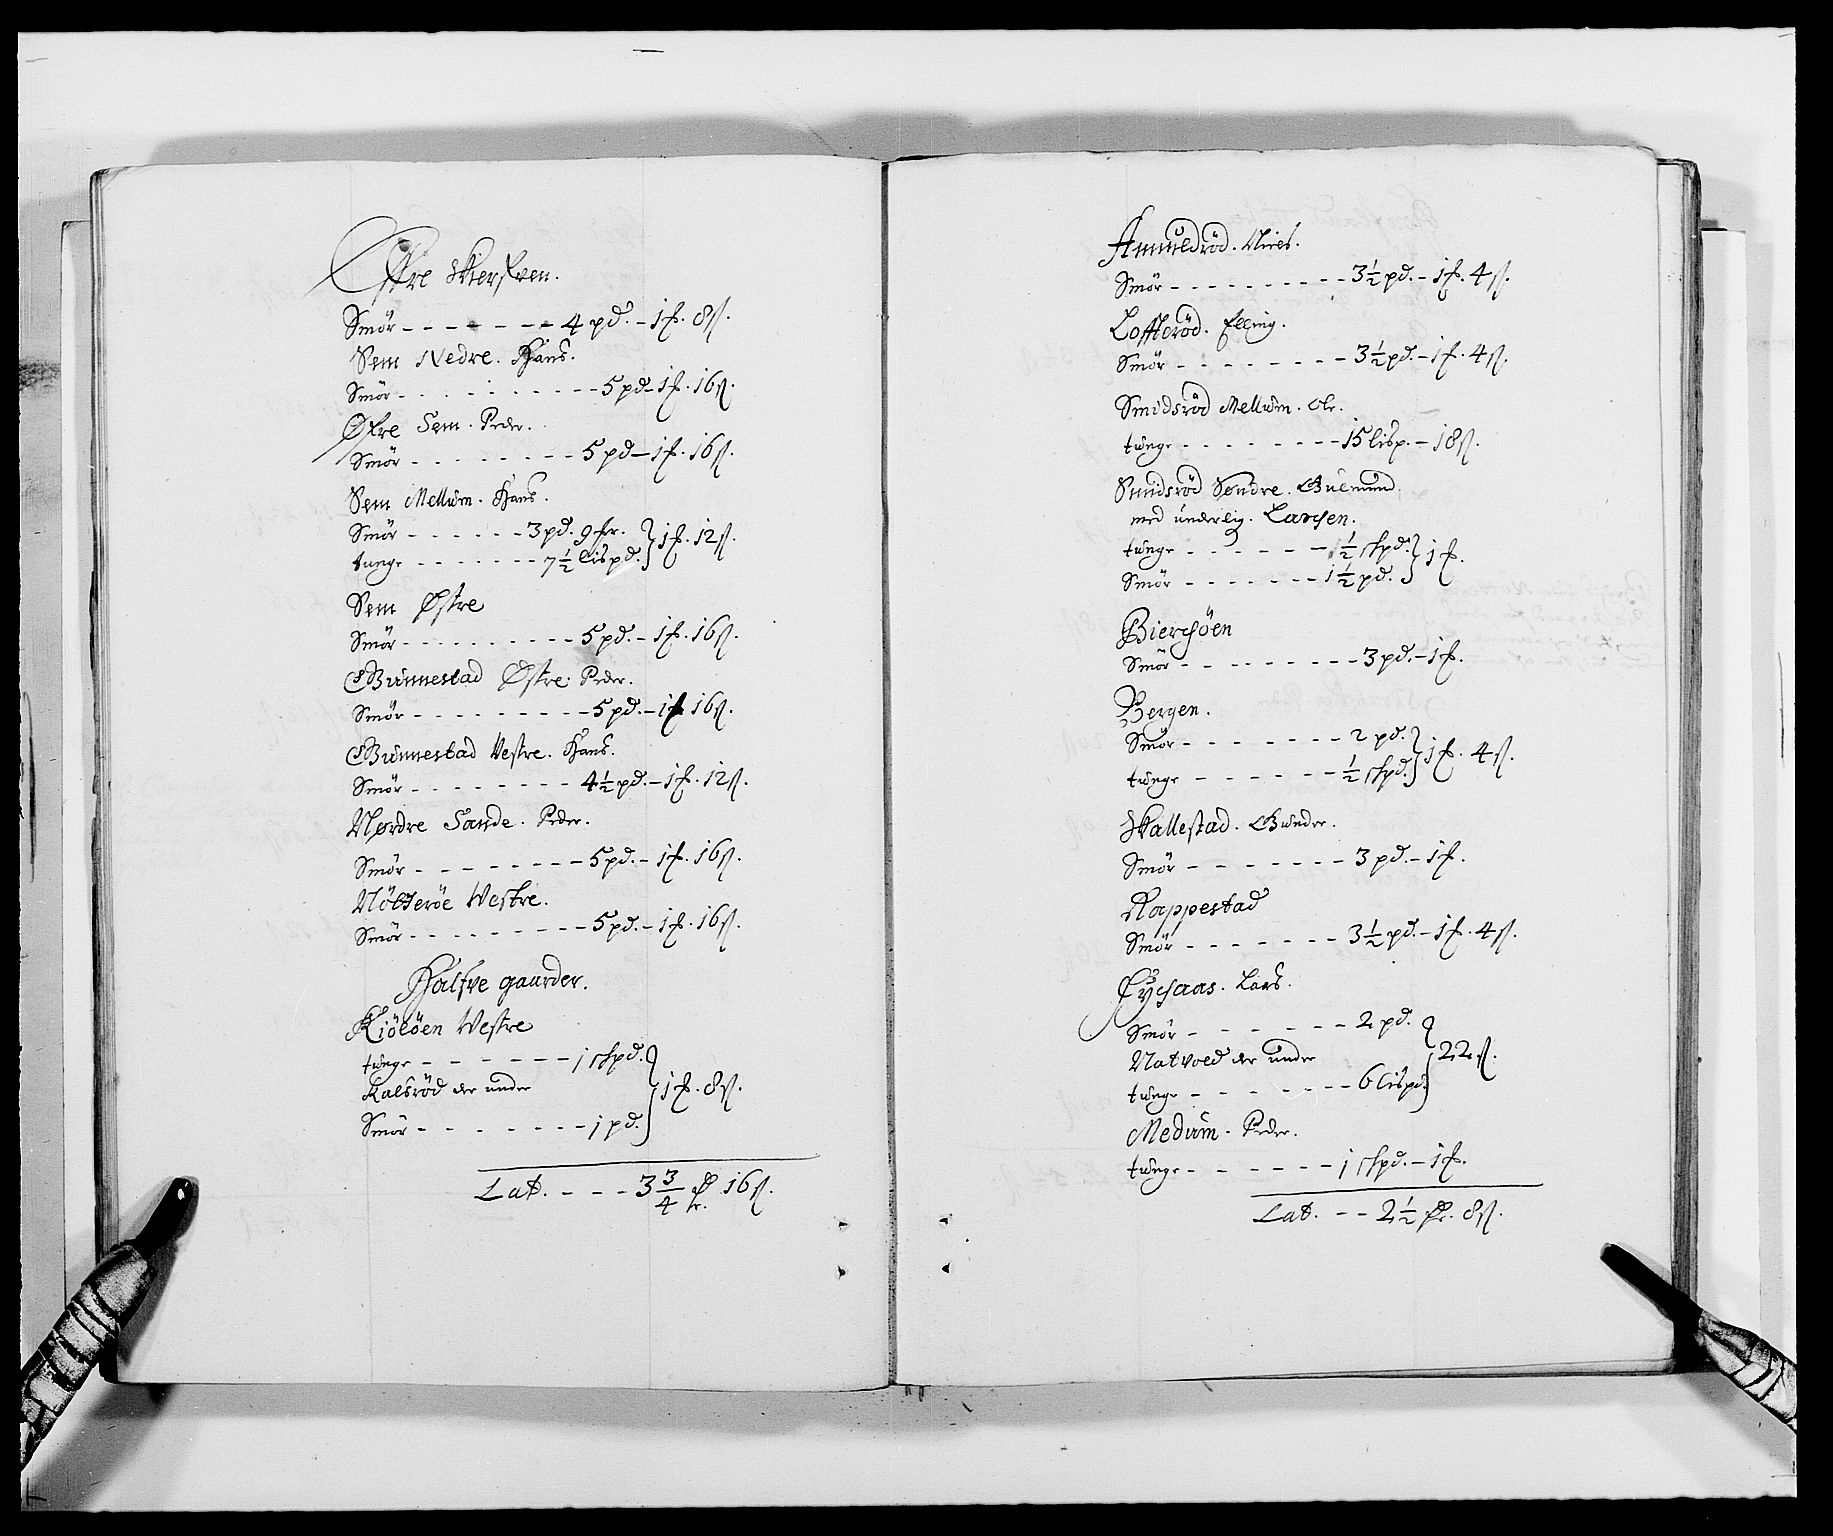 Øfre Skierfven.
Smör - - - - - - - 4 pd. - 1 f. 8 s.
Sem Nedre. Hans.
Smör - - - - - - - - 5 pd - 1 f. 16 s.
Øfre Sem. Peder.
Smör - - - - - - - - 5 pd - 1 f. 16 s.
Sem Mellum. Hans.
Smör - - - - - - 3 pd. 9 fr. } 1 f. 12 s.
tunge - - - - - - - 7 1/2 lispd.
Sem Østre
Smör - - - - - - - - - 5 pd. - 1 f. 16 s.
Gunnestad Østre. Peder.
Smör - - - - - - - - - 5 pd. - 1 f. 16 s.
Gunnestad Vestre. Hans.
Smör - - - - - - - - 4 1/2 pd. - 1 f. 12 s.
Nørdre Sande. Peder.
Smör - - - - - - - - 5 pd. - 1 f. 16 s.
Nötterøe Westre.
Smör - - - - - - - - - 5 pd. - 1 f. 16 s.
Halfve gaarder.
Kiölöen Westre
tunge - - - - - - 1 skpd. } 1 f. 8 s.
Kalsröd der under
Smör - - - - - - - 1 pd.
Lat. - - - 3 3/4 fr. 16 s.
Amuldröd. Nires.
Smör - - - - - - - - - - 3 1/2 pd. - 1 f. 4 s.
Lofteröd. Elling.
Smör - - - - - - - 3 1/2 pd. - 1 f. 4 s.
Smidsröd Mellum. Ole.
tunge - - - - - - - - 15 lisp. - 18 s.
Smidsröd Søndre. Gulmund
med underlig. Larsen.
tunge - - - - - - 1/2 skpd. } 1 f.
Smör - - - - - - - 1 1/2 pd.
Bierchöen
Smör - - - - - - - - 3 pd. - 1 f.
Bergen.
Smör - - - - - - - 2 pd. } 1 f. 4 s.
tunge - - - - - - 1/2 skpd.
Skallestad. Gunder.
Smör - - - - - - - 3 pd. - 1 f.
Rappestad
Smör - - - - - - - 3 1/2 pd. - 1 f. 4 s.
Lars.
Smör - - - - - - - 2 pd. } 22 s.
Natvold der under
tunge - - - - - - - 6 lispd.
Medum. Peder.
tunge - - - - - - 1 skpd. - 1 f.
Lat. - - 2 1/2 fr. 8 s.